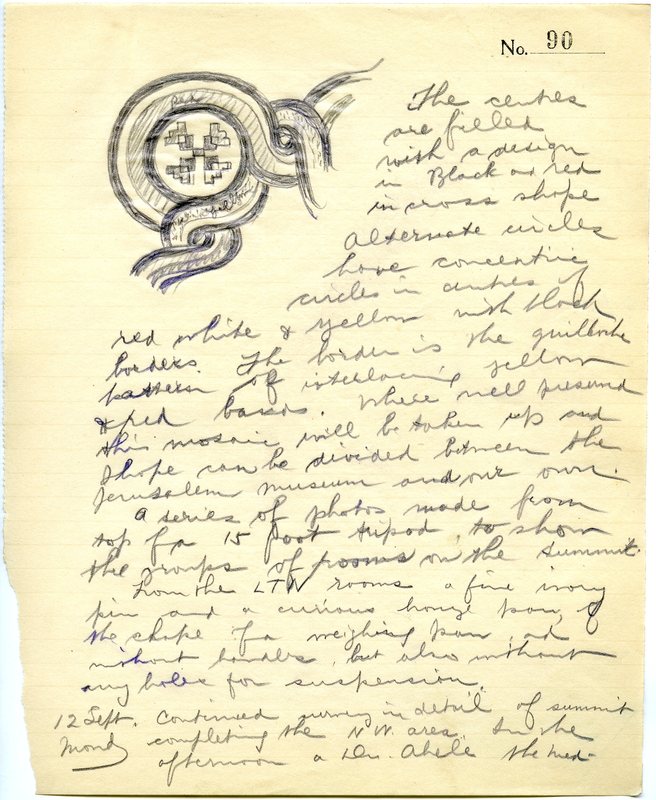 No. 90
The centres
are filled
with a design
in Black or red
in cross shape
Alternate circles
have concentric
circles in centres of
red white & yellow with black
borders. The border is the guilloche
pattern of interlacing yellow
& red bands. Where well preserved
this mosaic will be taken up and
I hope can be divided between the
Jerusalem Museum and our own.
A series of photos made from
top of a 15 foot tripod, to show
the groups of rooms on the summit.
From the LTN rooms a fine ivory
pin and a curious bronze pan, of
the shape of a weighing pan, and
without handles, but also without
any holes for suspension.
12 Sept. Continued survey in detail of summit
Mond completing the N.W. area. In the
afternoon a Dr. Abele the med-
red
yellow